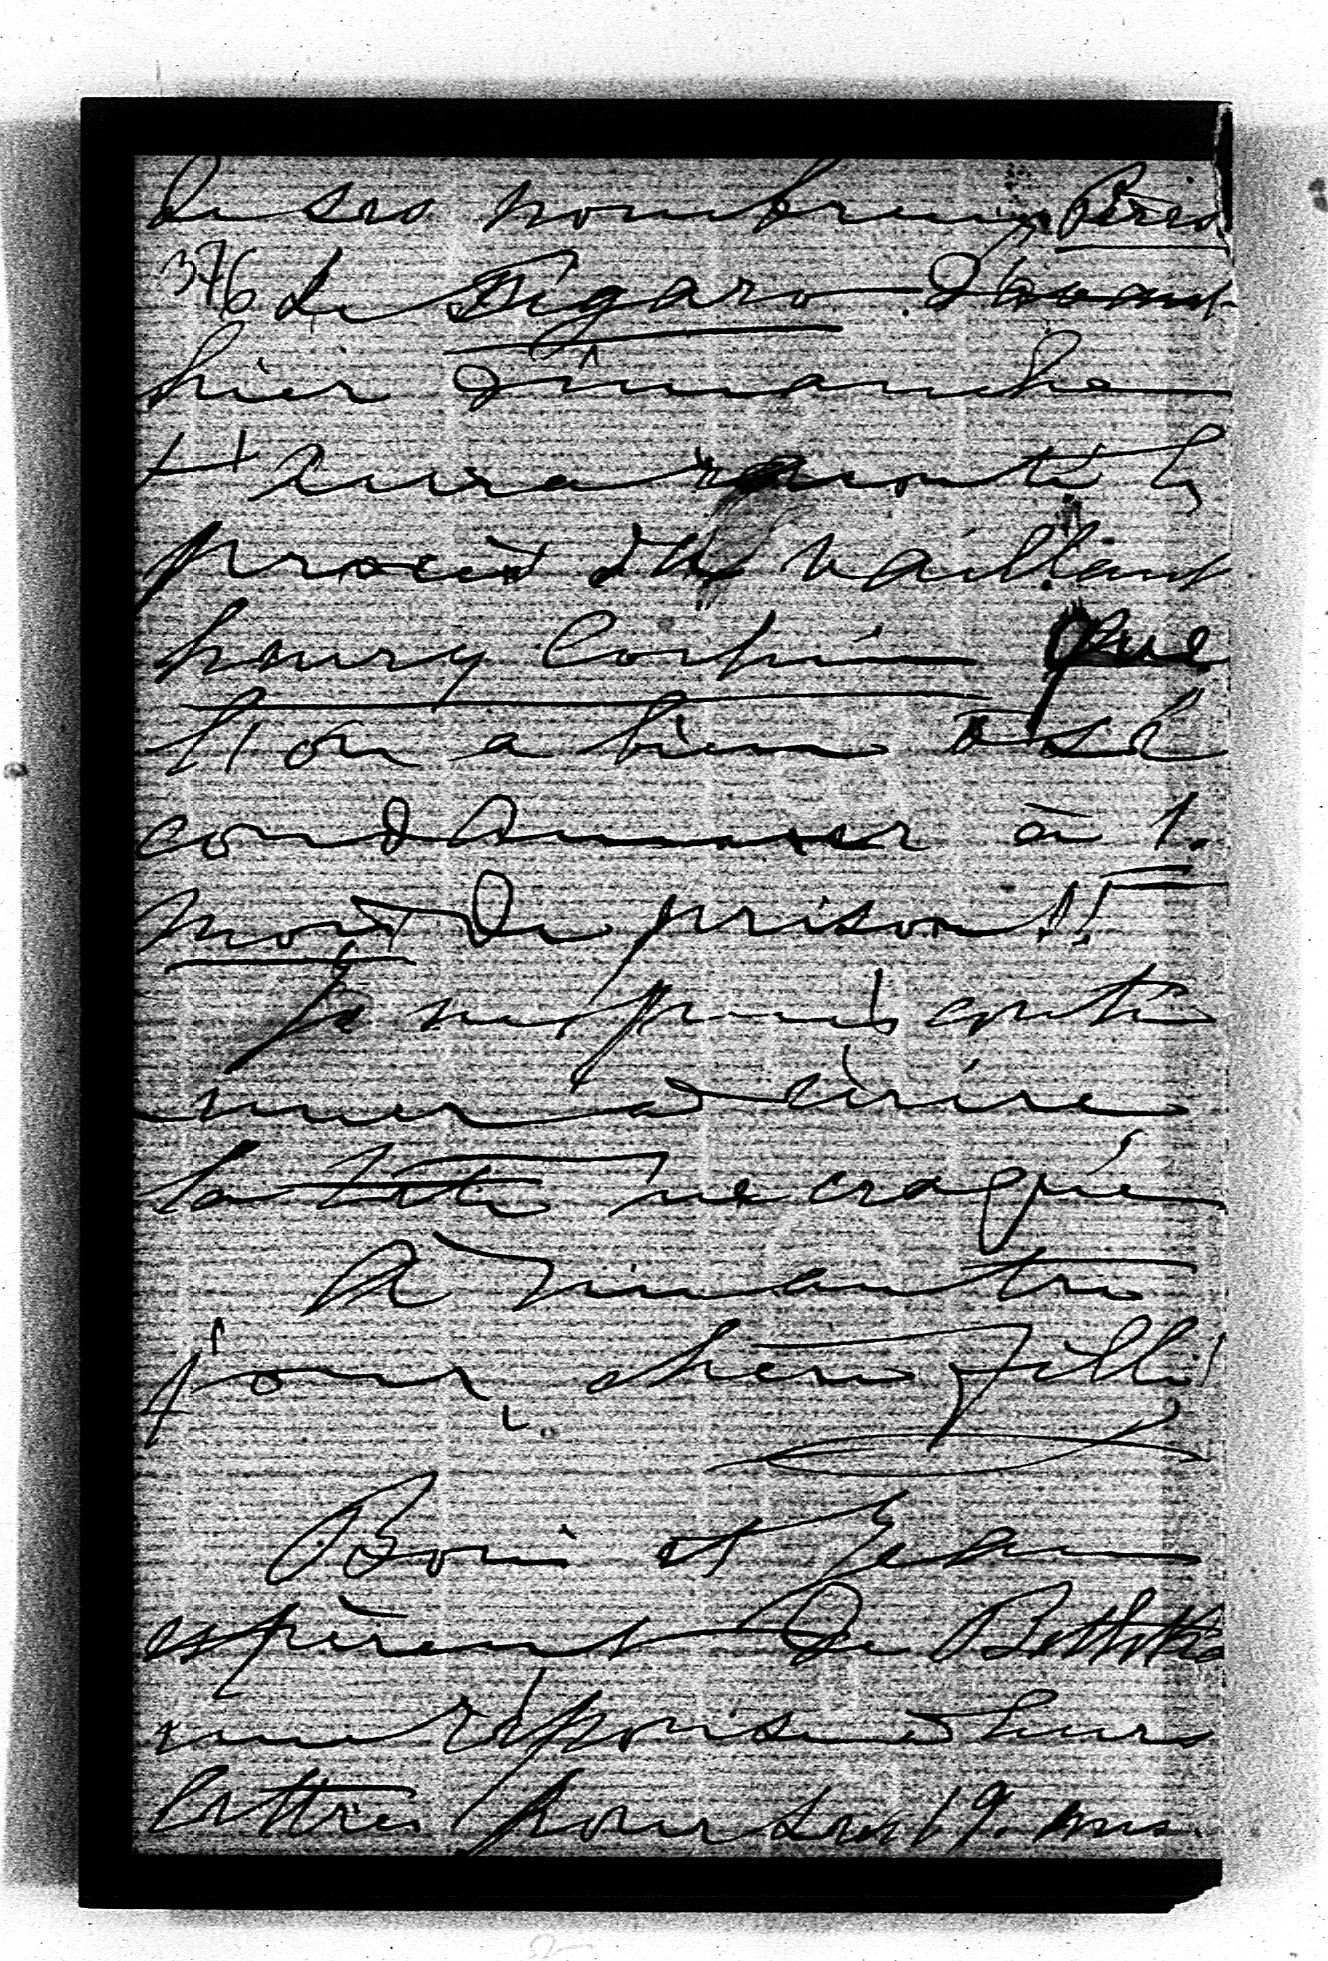 de ses nombreux Pères
376 Le Figaro d'avant
hier dimanche
t'aura raconté le
procès du vaillant
henry Corbin que
l'on a bien osé
condamner à 1.
mois de prison!!
Je ne puis conti
nuer à écrire
la tête me craque
A un autre
jour, chère fille!
Boni et Jean
espèrent de
une réponse à leurs
lettres pour ses 19 ans.